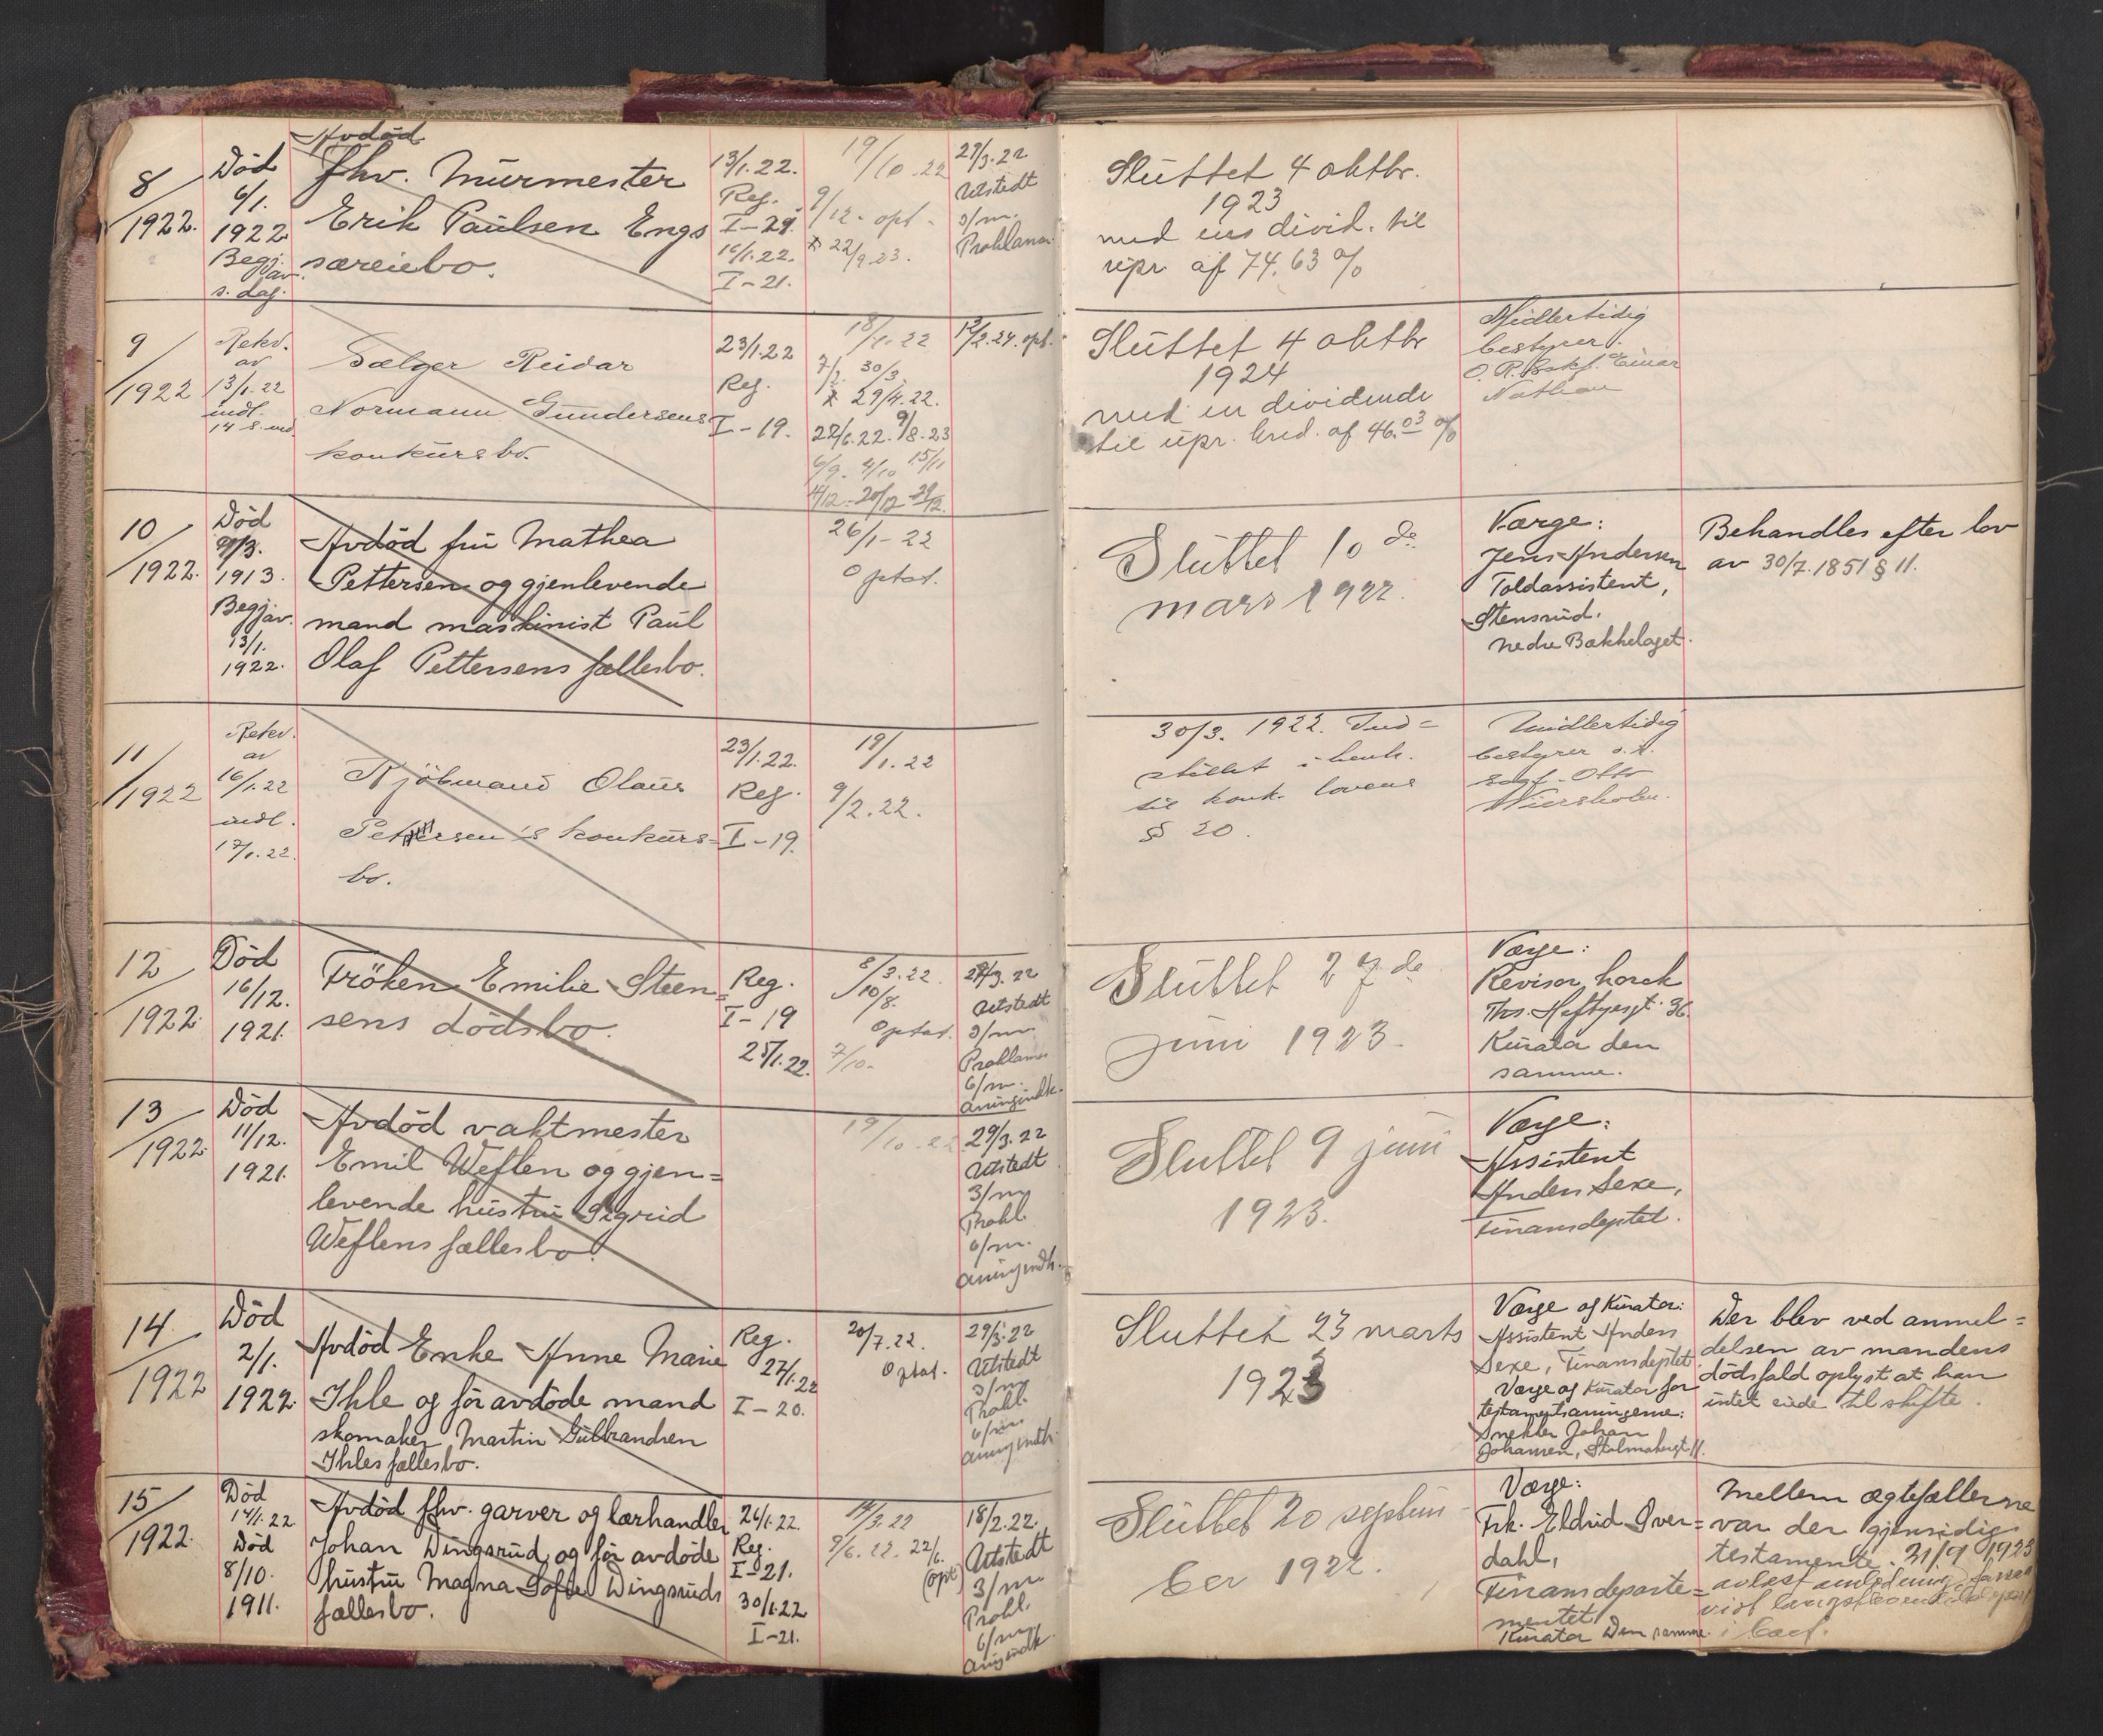 8/1922.
Död
6/1.
1922
Begj.
av
s. dag.
Avdöd
fhv. Murmester
Erik Paulsen Engs
særeiebo.
13/1.22.
Reg.
I-29.
16/1.22.
I-21.
19/10.22
9/12- opt-
22/9.23.
27/3.22
Utstedt
3/m.
Proklama
Sluttet 4 oktbr.
1923
med en divid. til
upr. af 74.63 %
9/1922
Rekv.
av
13/1.22
indl.
14 s. md.
Sælger Reidar
Normann Gundersens
konkursbo.
23/1.22
Reg.
I-19.
18/1.22
7/2. 30/3.
29/4.22.
22/6.22. 9/8.23
6/9. 4/10 15/11
14/12- 20/12
12/2.24. opt.
Sluttet 4 oktbr
1924
med en dividende
til upr. kred. af 46.03 %
Midlertidig
bestyrer.
O.R. Sakf. Einar
Nathan
10/1922.
Död
9/3.
1913.
Begj. av.
13/1.
1922.
Avdöd fru Mathea
Pettersen og gjenlevende
mand maskinist Paul
Olaf Pettersens fællesbo.
26/1-22
Optat.
Sluttet 10 de
mars 1922.
Værge:
Jens Andersen
Toldassistent,
Stensrud.
nedre Bækkelaget.
Behandles efter lov
av 30/7.1851 § 11.
11/1922
Rekv.
av
16/1.22
indl.
17/1.22.
Kjöbmand Olaus
Petersen's konkurs=
bo.
23/1.22.
Reg.
I-19.
19/1.22
9/2.22.
30/3. 1922. Ind=
stillet i henh.
til konk. lovens
§ 20.
Midlertidig
bestyrer o.r.
sagf. Otto
Wiersholm.
12/1922
Död
16/12.
1921.
Fröken Emilie Steen=
sens dödsbo.
Reg.
I-19
25/1.22.
8/3.22.
10/8.
Optat.
7/10-
27/3.22
Utstedt
3/m
Proklama
6/m.
arvingindk.
Sluttet 27 de
juni 1923.
Værge:
Revisor horck
Ths. Heftyesgt. 36.
Kurator den
samme.
13/1922
Död
11/12.
1921.
Avdöd vaktmester
Emil Weflen og gjen=
levende hustru Sigrid
Weflens fællesbo.
19/10.22
29/3.22
Utstedt
3/m
Prokl.
6/m.
arvingindk.
Sluttet 9 juni
1923.
Værge:
Assistent
Anders Sexe,
Finansdeptet.
14/1922
Död
2/1.
1922.
Avdöd Enke Anne Marie
Ihle og för avdöde mand
skomaker Martin Gulbrandsen
Ihles fællesbo.
Reg.
27/1.22
I-20.
20/7.22.
Optat.
29/3.22
Utstedt
3/m
Prokl.
6/m
arvingindk.
Sluttet 23 marts
1923
Værge og Kurator:
Assistent Anders
Sexe, Finansdeptet
Værge og Kurator for
testamentsarvingerne:
Snekker Johan
Johansen, Stolmakergt. 11.
Der blev ved anmel=
delsen av mandens
dödsfald oplyst at han
intet eiede til skifte.
15/1922.
Död
14/1.22
Död
8/10.
1911.
Avdöd fhv. garver og lærhandler
Johan Dingsrud og för avdöde
hustru Magna Sofie Dingsruds
fællesbo.
26/1.22.
Reg.
I-21.
30/1.22
I-21.
14/3.22
8/6.22. 22/6.
(opt)
18/2.22.
Utstedt
3/m.
Prokl.
6/m
arvgindk.
Sluttet 20 septem
ber 1922.
Værge:
Frk. Eldrid Over=
dahl,
Finansdeparte=
mentet
Kurator Den samme.
Mellem ægtefællerne
var der gjensidig
testamente. 21/9 1923
i